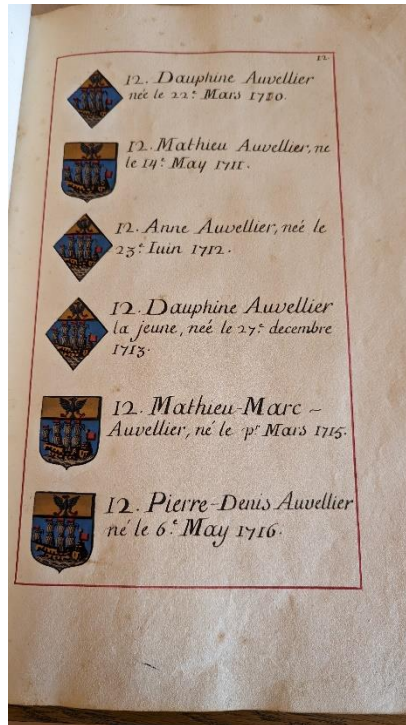 12
12. Dauphine Auvellier
née le 22.e Mars 1710.
12. Mathieu Auvellier, ne
le 14.e May 1711.
12. Anne Auvellier, neé le
23.e Iuin 1712.
12. Dauphine Auvellier
la jeune, neé le 27.e decembre
1713.
12. Mathieu-Marc-
Auvellier, né le pr Mars 1715.
12. Pierre-Denis Auvellier
né le 6.e May 1716.